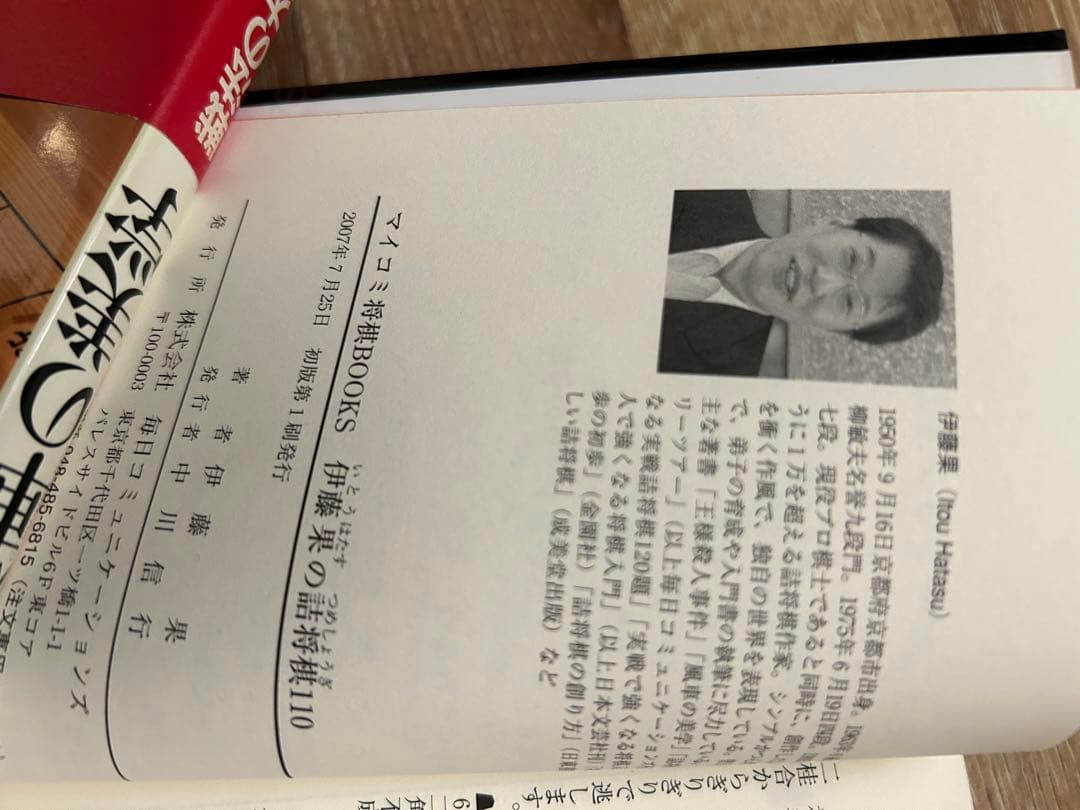 伊藤果 (Itou Hatasu)
1950年9月16日京都府京都市出身。
柳敏夫名誉九段門。1975年6月19日四段、
七段。現役プロ棋士であると同時に、創作
うに1万を超える詰将棋作家。シンプルか
を衝く作風で、独自の世界を表現している。
で、弟子の育成や入門書の執筆に尽力して
主な著書「王様殺人事件」「風車の美学」
リーツアー」(以上毎日コミュニケーション
なる実戦詰将棋120題」「実戦で強くなる
人で強くなる将棋入門」(以上日本文芸社刊)
歩の初歩」(金園社)「詰将棋の創り方」(日東
しい詰将棋」(成美堂出版)など
マイコミ将棋BOOKS
いとうはたす つめしょうぎ
伊藤果の詰将棋110
2007年7月25日 初版第1刷発行
著者 伊藤果
発行者 中川信行
発行所 株式会社 毎日コミュニケーションズ
〒100-0003 東京都千代田区一ツ橋1-1-1
パレスサイドビル6F 東コア
485-6815 (注文専用
二桂合からぎりぎりで逃
します。